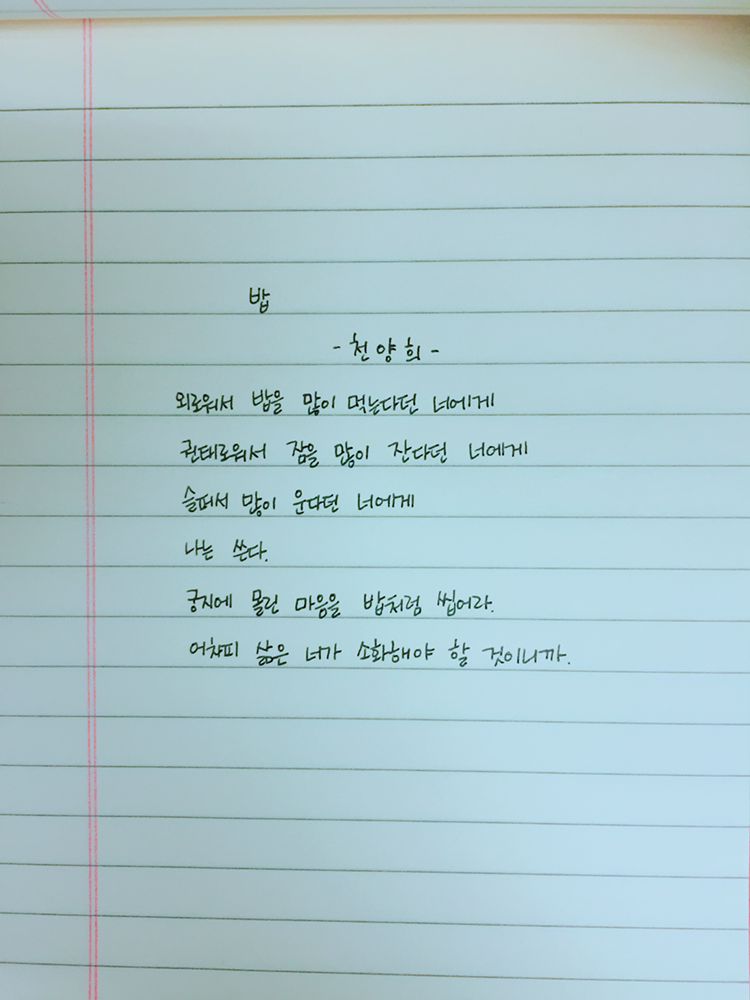 밥
- 천양희 -
외로워서 밥을 많이 먹는다던 너에게
권태로워서 잠을 많이 잔다던 너에게
슬퍼서 많이 운다던 너에게
나는 쓴다.
궁지에 몰린 마음을 밥처럼 씹어라.
어차피 삶은 너가 소화해야 할 것이니까.